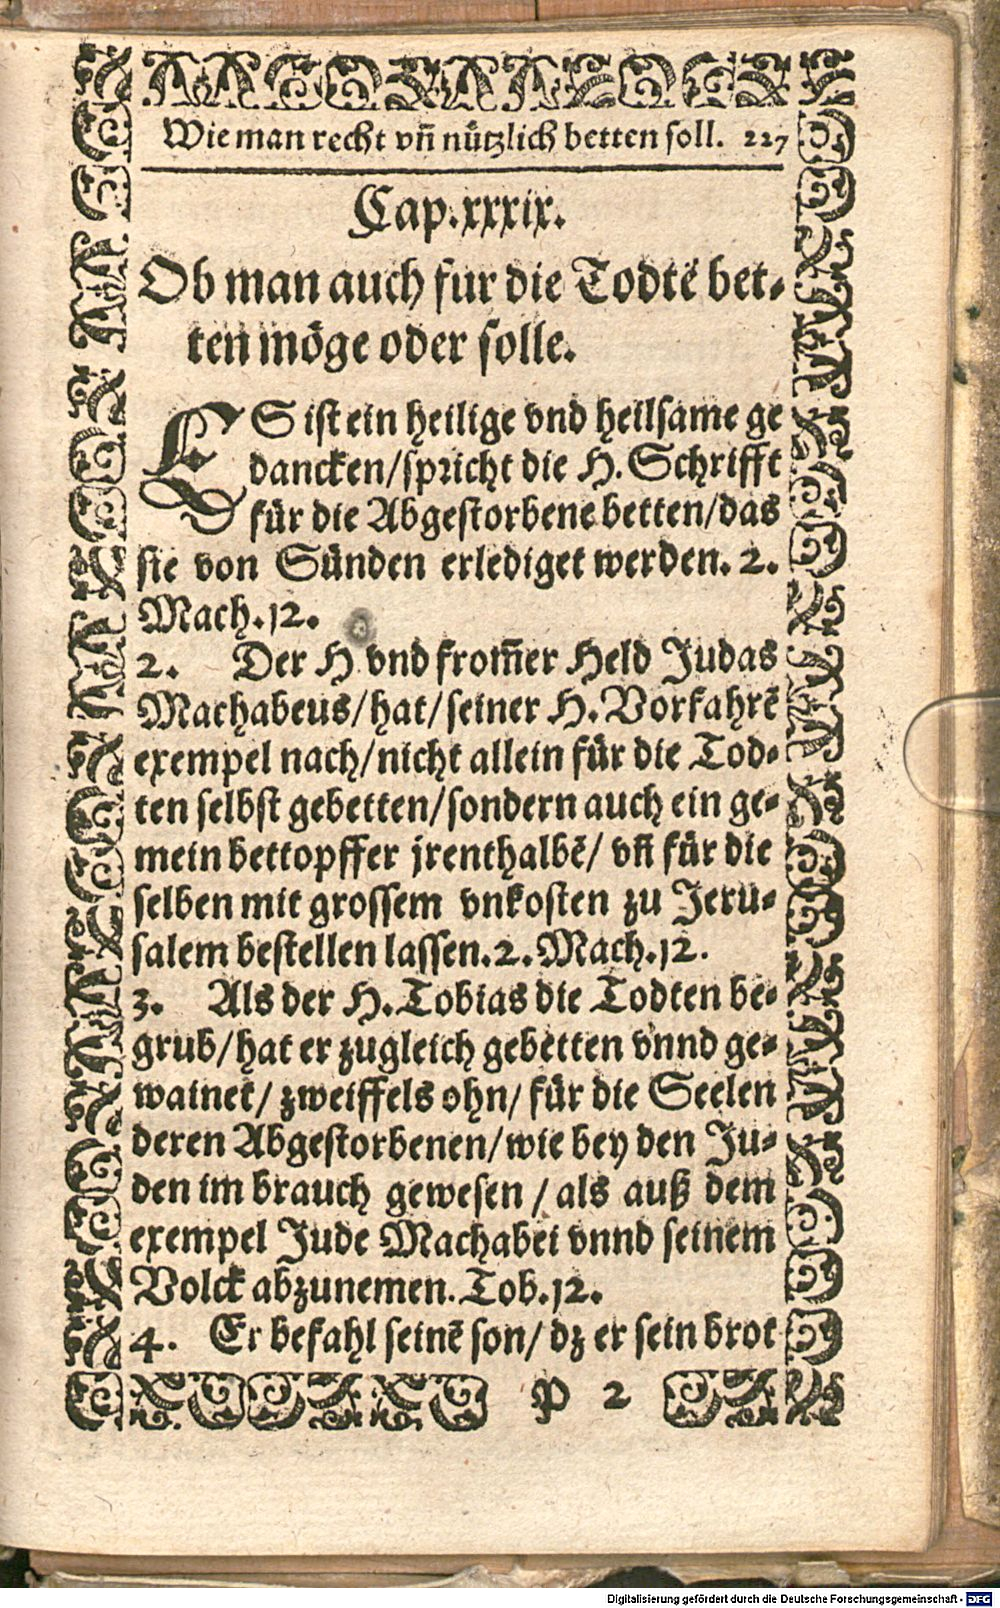 Wie man recht vn̄ nützlich betten soll. 227
Cap. xxxix.
Ob man auch fur die Todtē bet-
ten möge oder solle.
ES ist ein heilige vnd heilsame ge
dancken/spricht die H. Schrifft
für die Abgestorbenē betten/das
sie von Sünden erlediget werden. 2.
Mach. 12.
2. Der H. vnd from̄er Held Judas
Machabeus/hat/seiner H. Vorfahrē
exempel nach/nicht allein für die Tod-
ten selbst gebetten/sondern auch ein ge-
mein bettopffer jrenthalbē/ vn̄ für die
selben mit grossem vnkosten zu Jeru-
salem bestellen lassen. 2. Mach. 12.
3. Als der H. Tobias die Todten be-
grub/hat er zugleich gebetten vnnd ge-
wainet/ zweiffels ohn/ für die Seelen
deren Abgestorbenen/wie bey den Ju-
den im brauch gewesen / als auß dem
exempel Jude Machabei vnnd seinem
Volck abzunemen. Tob. 12.
4. Er befahl seinē son/ dz er sein brot
P 2
Digitalisierung gefördert durch die Deutsche Forschungsgemeinschaft - DFG